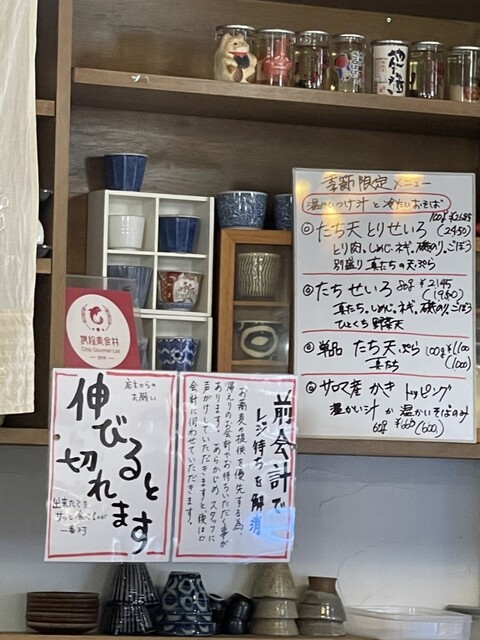 季節限定 メニュー
温かいつけ汁と冷たいおそば
たち天とりせいろ 100g ¥2695
(2450)
とり肉、しめじ、ネギ、磯のり、ごぼう
別盛り 真たちの天ぷら
たちせいろ 80g ¥2145
(1950)
真たち、しめじ、ネギ、磯のり、ごぼう
ひとくち 野菜天
単品 たち天ぷら 100g ¥1100
(1000)
真たち
サロマ産 かき トッピング
温かい汁か 温かいそばのみ
60g ¥660 (600)
携程美食林
Ctrip Gourmet List
店主からのお願い
伸びると
切れます
出来たてを
サッと食べるのが
一番です
前会計で
レジ待ちを解消
お蕎麦の提供を優先する為、
帰りのお会計でお待ちいただく事が
あります。あらかじめスタッフに
声がけしていただきますと先に
会計に伺わせていただきます。